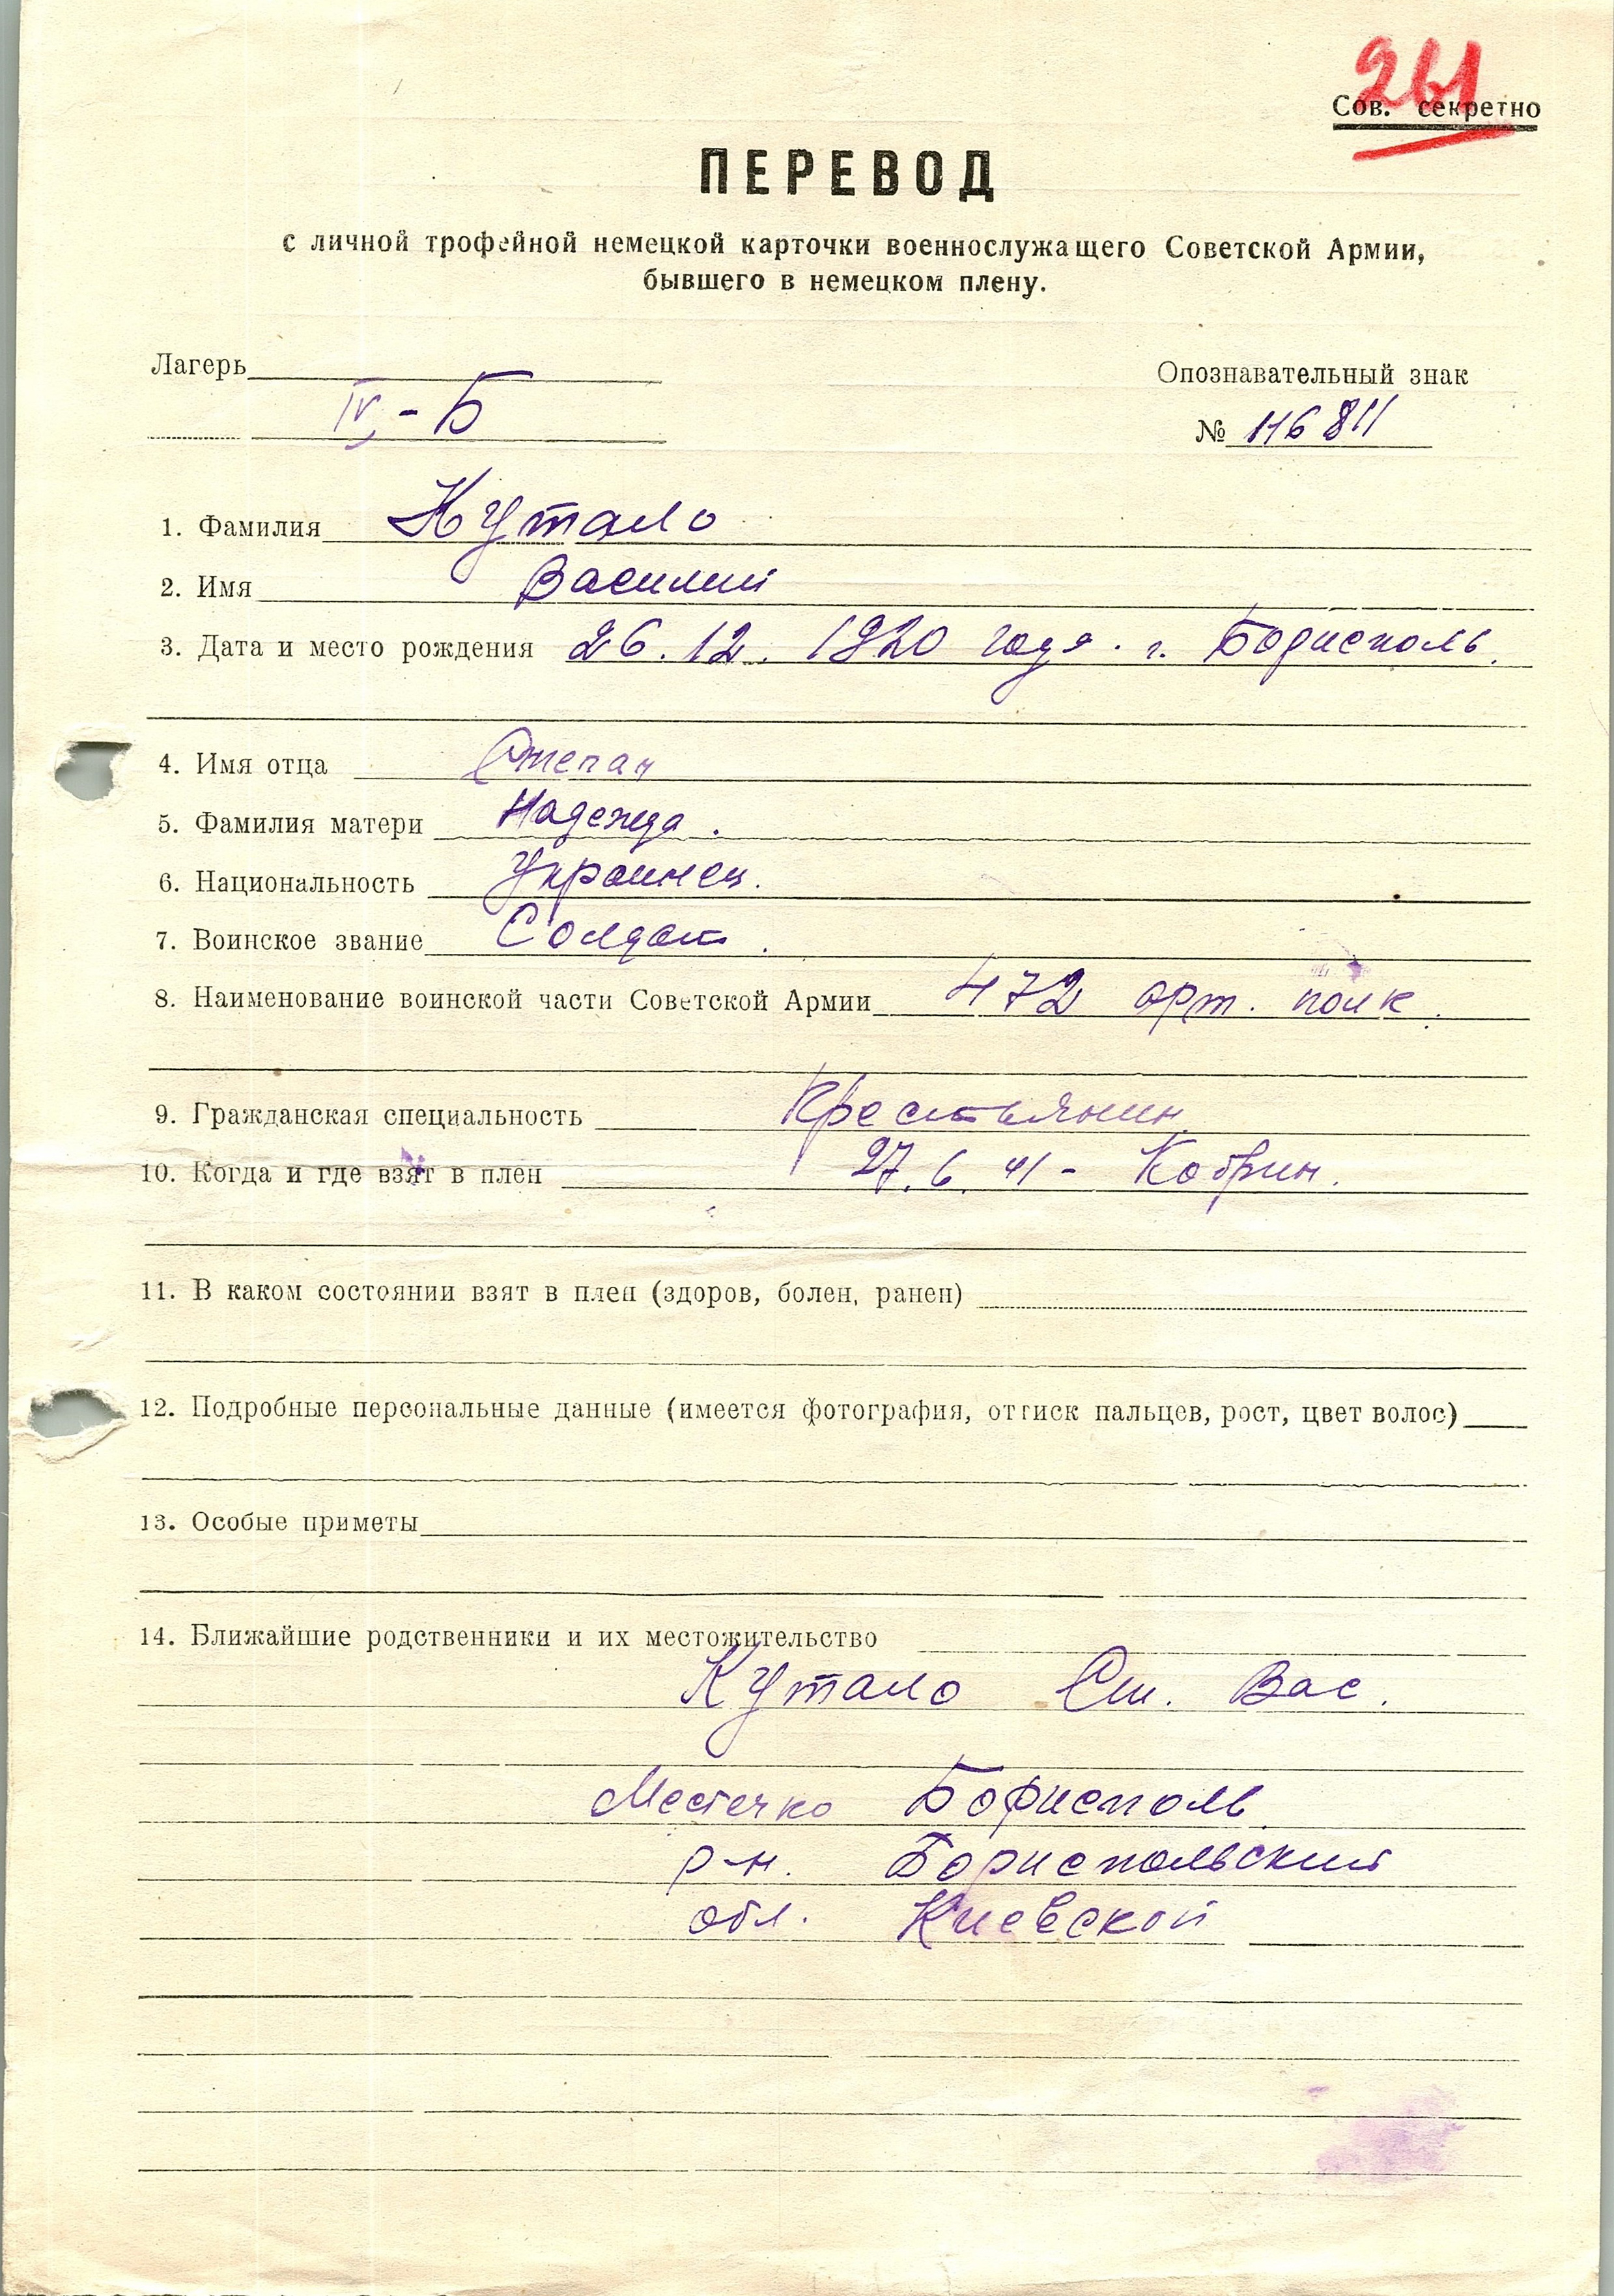 261
Сов. секретно
ПЕРЕВОД
с личной трофейной немецкой карточки военнослужащего Советской Армии,
бывшего в немецком плену.
Лагерь
Опознавательный знак
IV-Б
№ 116811
1. Фамилия Кутало
2. Имя Василий
3. Дата и место рождения 26.12.1920 года. г. Борисполь.
4. Имя отца Степан
5. Фамилия матери Надежда.
6. Национальность Украинец.
7. Воинское звание Солдат.
8. Наименование воинской части Советской Армии 472 арт. полк.
9. Гражданская специальность Крестьянин.
10. Когда и где взят в плен 27.6.41 - Кобрин.
11. В каком состоянии взят в плен (здоров, болен, ранен)
12. Подробные персональные данные (имеется фотография, оттиск пальцев, рост, цвет волос)
13. Особые приметы
14. Ближайшие родственники и их местожительство
Кутало Ст. Вас.
Местечко Борисполь
р-н. Бориспольский
обл. Киевской